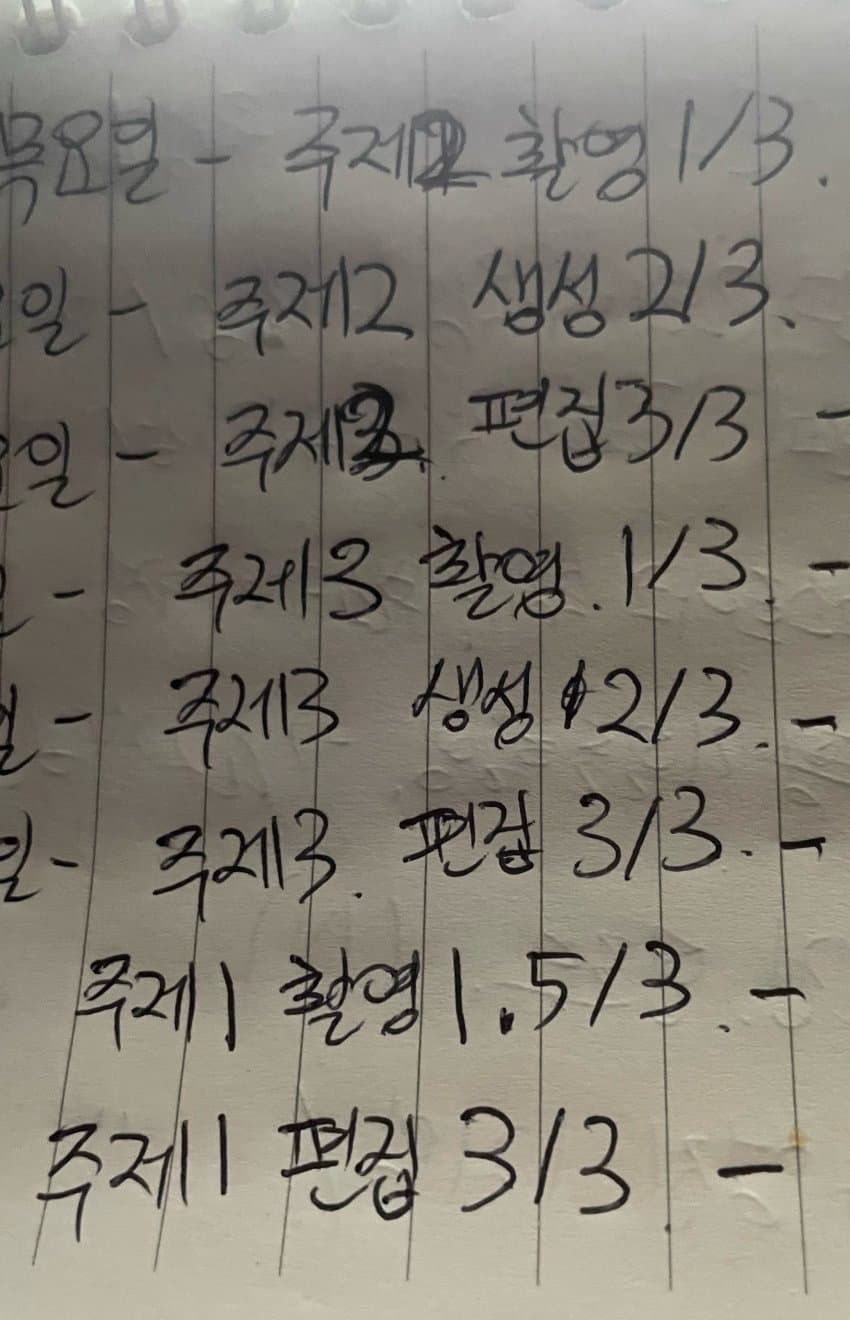 목요일 - 주제2 촬영 1/3.
요일 - 주제2 생성 2/3.
요일 - 주제2. 편집 3/3 -
- 주제3 촬영. 1/3. -
일 - 주제3 생성 2/3. -
일 - 주제3. 편집 3/3. -
주제1 촬영 1.5/3. -
주제1 편집 3/3 -